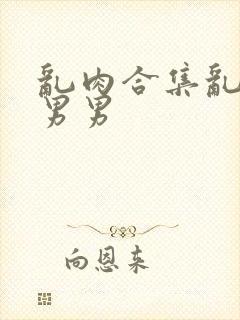 亂肉合集亂
男男
向恩来